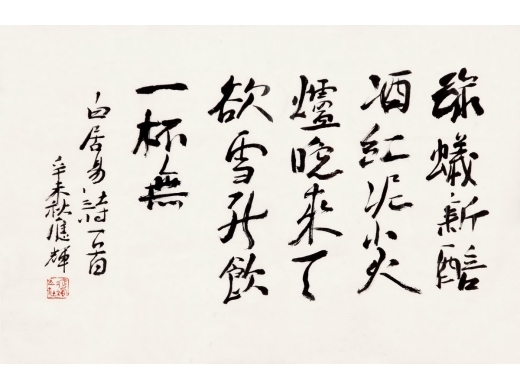 綠蟻新醅
酒紅泥小火
爐晚來天
欲雪能飲
一杯無
白居易詩一首
辛未秋輝